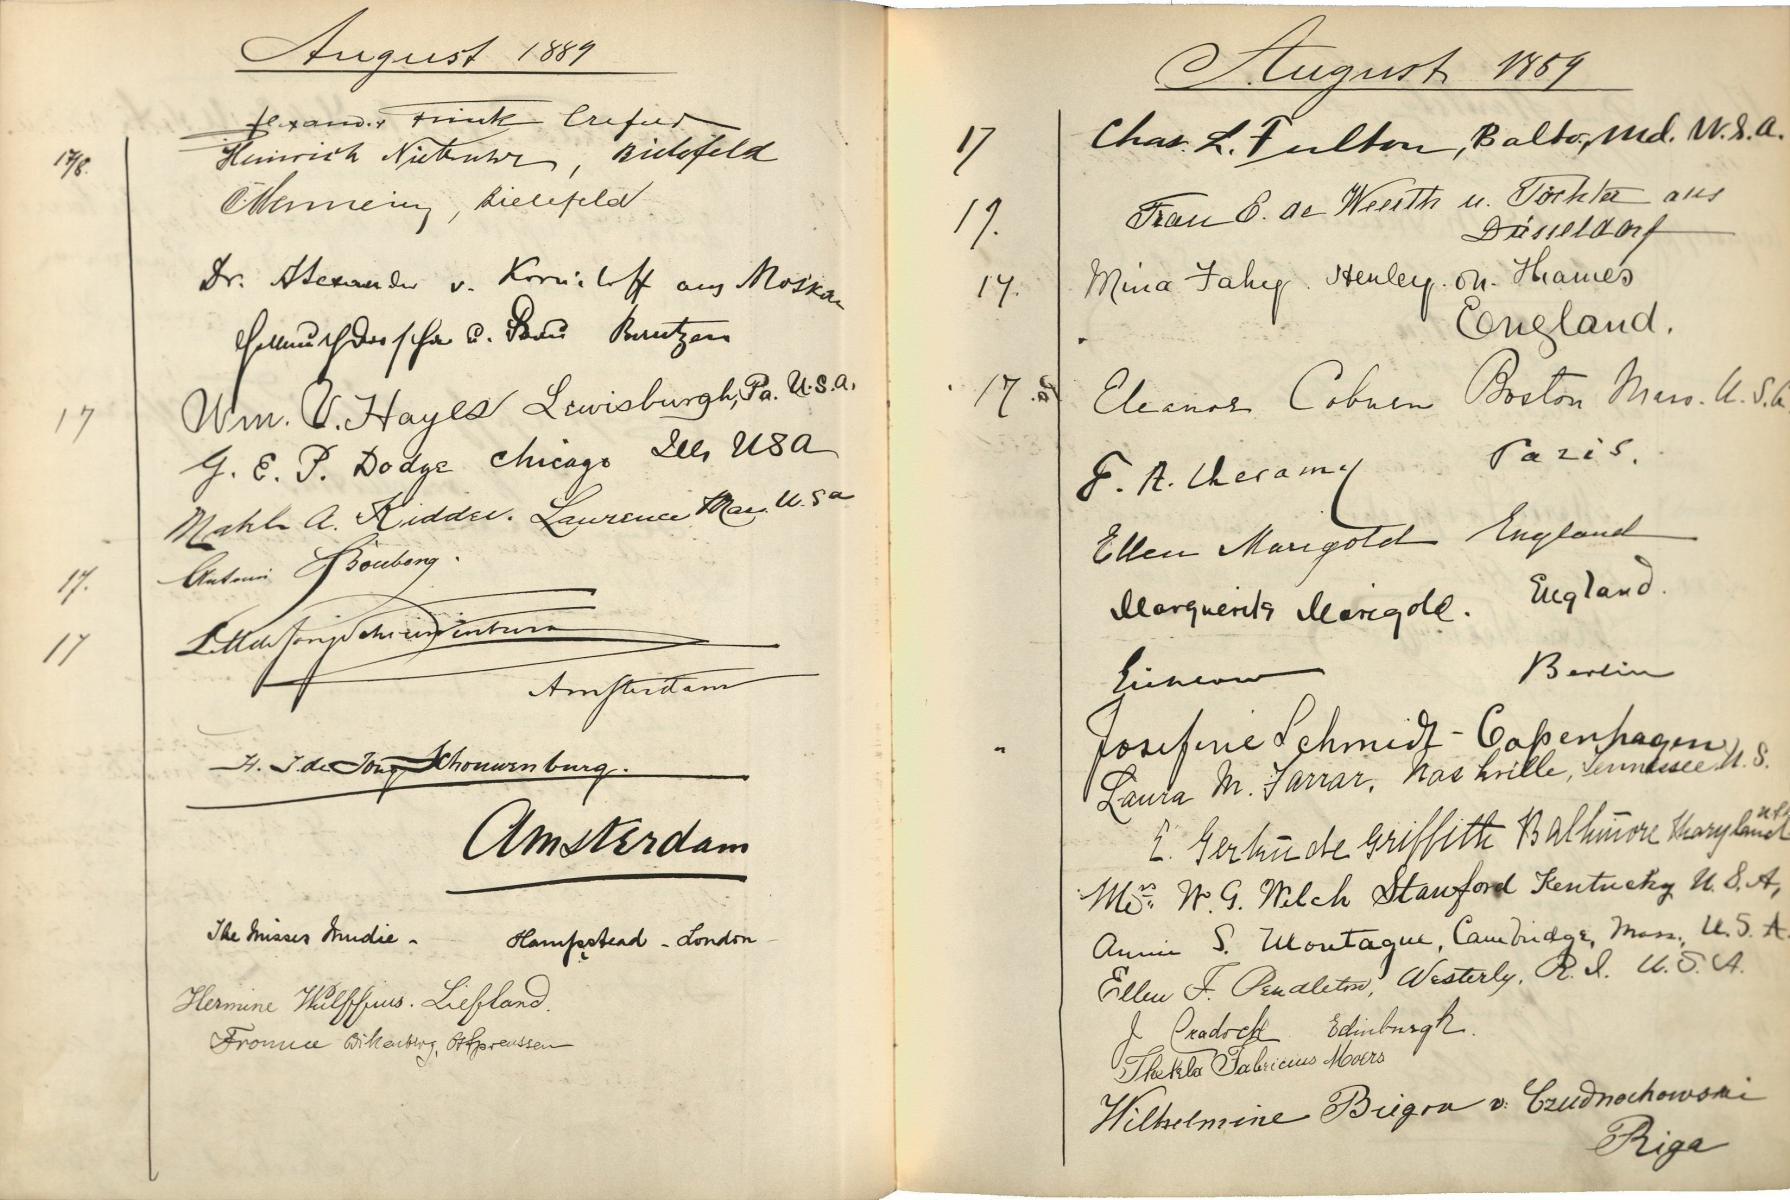 August 1889
Crefeld
17/8. Heinrich , Bielefeld
, Bielefeld
Dr. Alexander v. Korniloff aus Moskau
Bautzen
17 Wm. C. Hayes Lewisburgh, Pa. U.S.A.
G. E. P. Dodge Chicago Ills USA
A. Kidder. Lawrence U.S.A
17.
17
Amsterdam
H. J. de Jong Schouwenburg.
Amsterdam
The Misses Mudie - Hampstead - London
Hermine Wulffius. Liefland.
Ostpreussen
August 1889
17 Chas. L. Fulton, Balto., Md. U.S.A.
17. Frau E. de Weerth u. Töchter aus
Düsseldorf
17. Mina Fahey. Henley. on. Thames
England.
17.8 Eleanor Coburn Boston Mass. U.S.A
F. A. Paris.
Ellen Marigold England
Marguerite Marigold. England.
Berlin
" Josefine Schmidt - Copenhagen
Laura M. Farrar, Nashville, Tennessee, U.S.
E. Gertrude Griffith Baltimore Maryland
Mrs. W. G. Welch Stanford Kentucky U.S.A,
Annie S. Montague, Cambridge, Mass., U.S.A.
Ellen F. Pendleton, Westerly, R.I. U.S.A.
J Cradock Edinburgh.
Thekla Fabricius Moers
Wilhelmine Biegon v. Czudnochowski
Riga